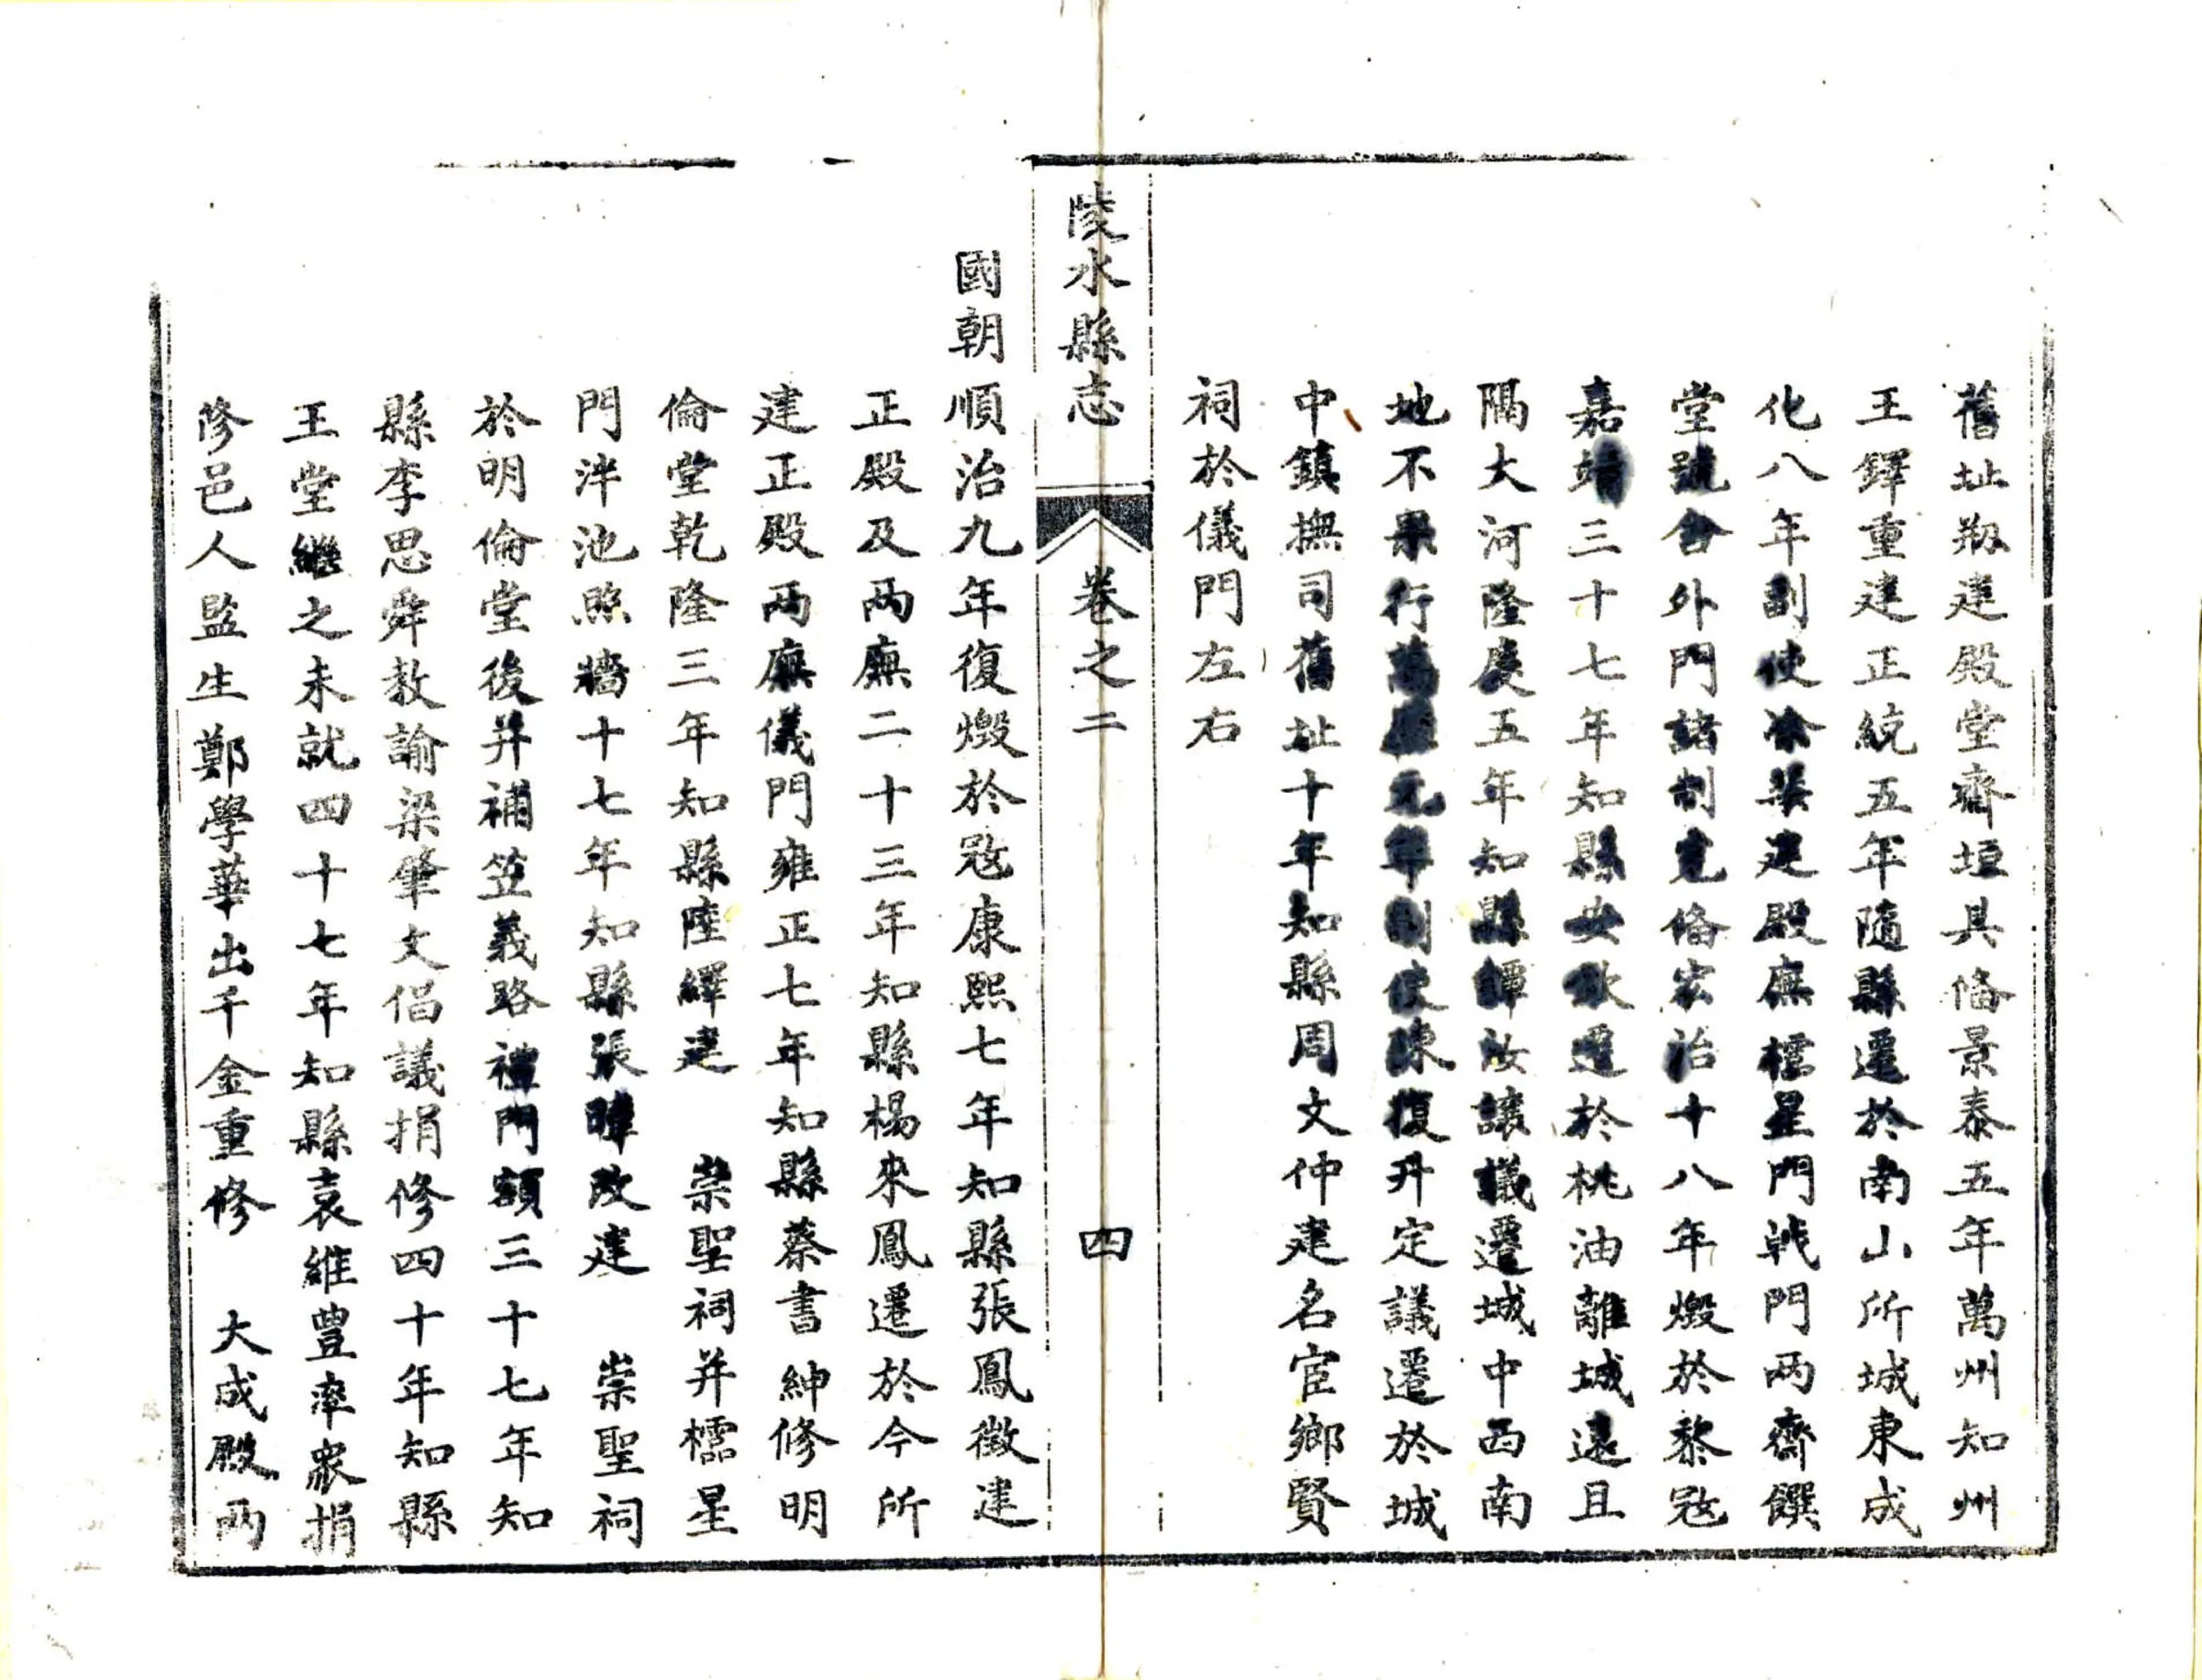 舊址刱建殿堂齋垣具俻景泰五年萬州知州
王鐸重建正統五年隨縣遷於南山所城東成
化八年副使凃棐建殿廡櫺星門戟門兩齋饌
堂號舍外門諸制寛俻宏治十八年燬於黎冦
嘉靖三十七年知縣安歙遷於桃油離城遠且
隔大河隆慶五年知縣譚汝讓議遷城中西南
地不果行萬曆元年副使陳復升定議遷於城
中鎮撫司舊址十年知縣周文仲建名宦鄉賢
祠於儀門左右
陵水縣志 卷之二 四
國朝順治九年復燬於冦康熙七年知縣張鳳徵建
正殿及兩廡二十三年知縣楊來鳳遷於今所
建正殿兩廡儀門雍正七年知縣蔡書紳修明
倫堂乾隆三年知縣陸繹建 崇聖祠并櫺星
門泮池照牆十七年知縣張暐改建 崇聖祠
於明倫堂後并補笠義路禮門額三十七年知
縣李思舜教諭梁肇文倡議捐修四十年知縣
王堂繼之未就四十七年知縣袁維豊率衆捐
修邑人監生鄭學華出千金重修 大成殿兩